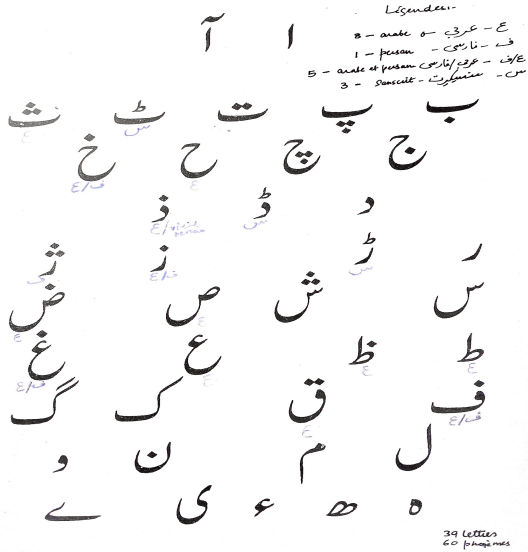 Légendes:-
8 - arabe - عربی - ع
1 - persan - فارسی - ف
5 - arabe et persan عربی/فارسی - ع/ف
3 - Sanscrit - سنسکرت - س
ا آ
ب پ ت ٹ ث
س ع
ج چ ح خ
ع ع/ف
د ڈ ذ
س ع/vieux persan
ر ڑ ز ژ
س ع/ف ف
س ش ص ض
ع ع
ط ظ ع غ
ع ع ع ع/ف
ف ق ک گ
ع/ف ع
ل م ن و
ہ ھ ء ی ے
39 lettres
60 phonèmes